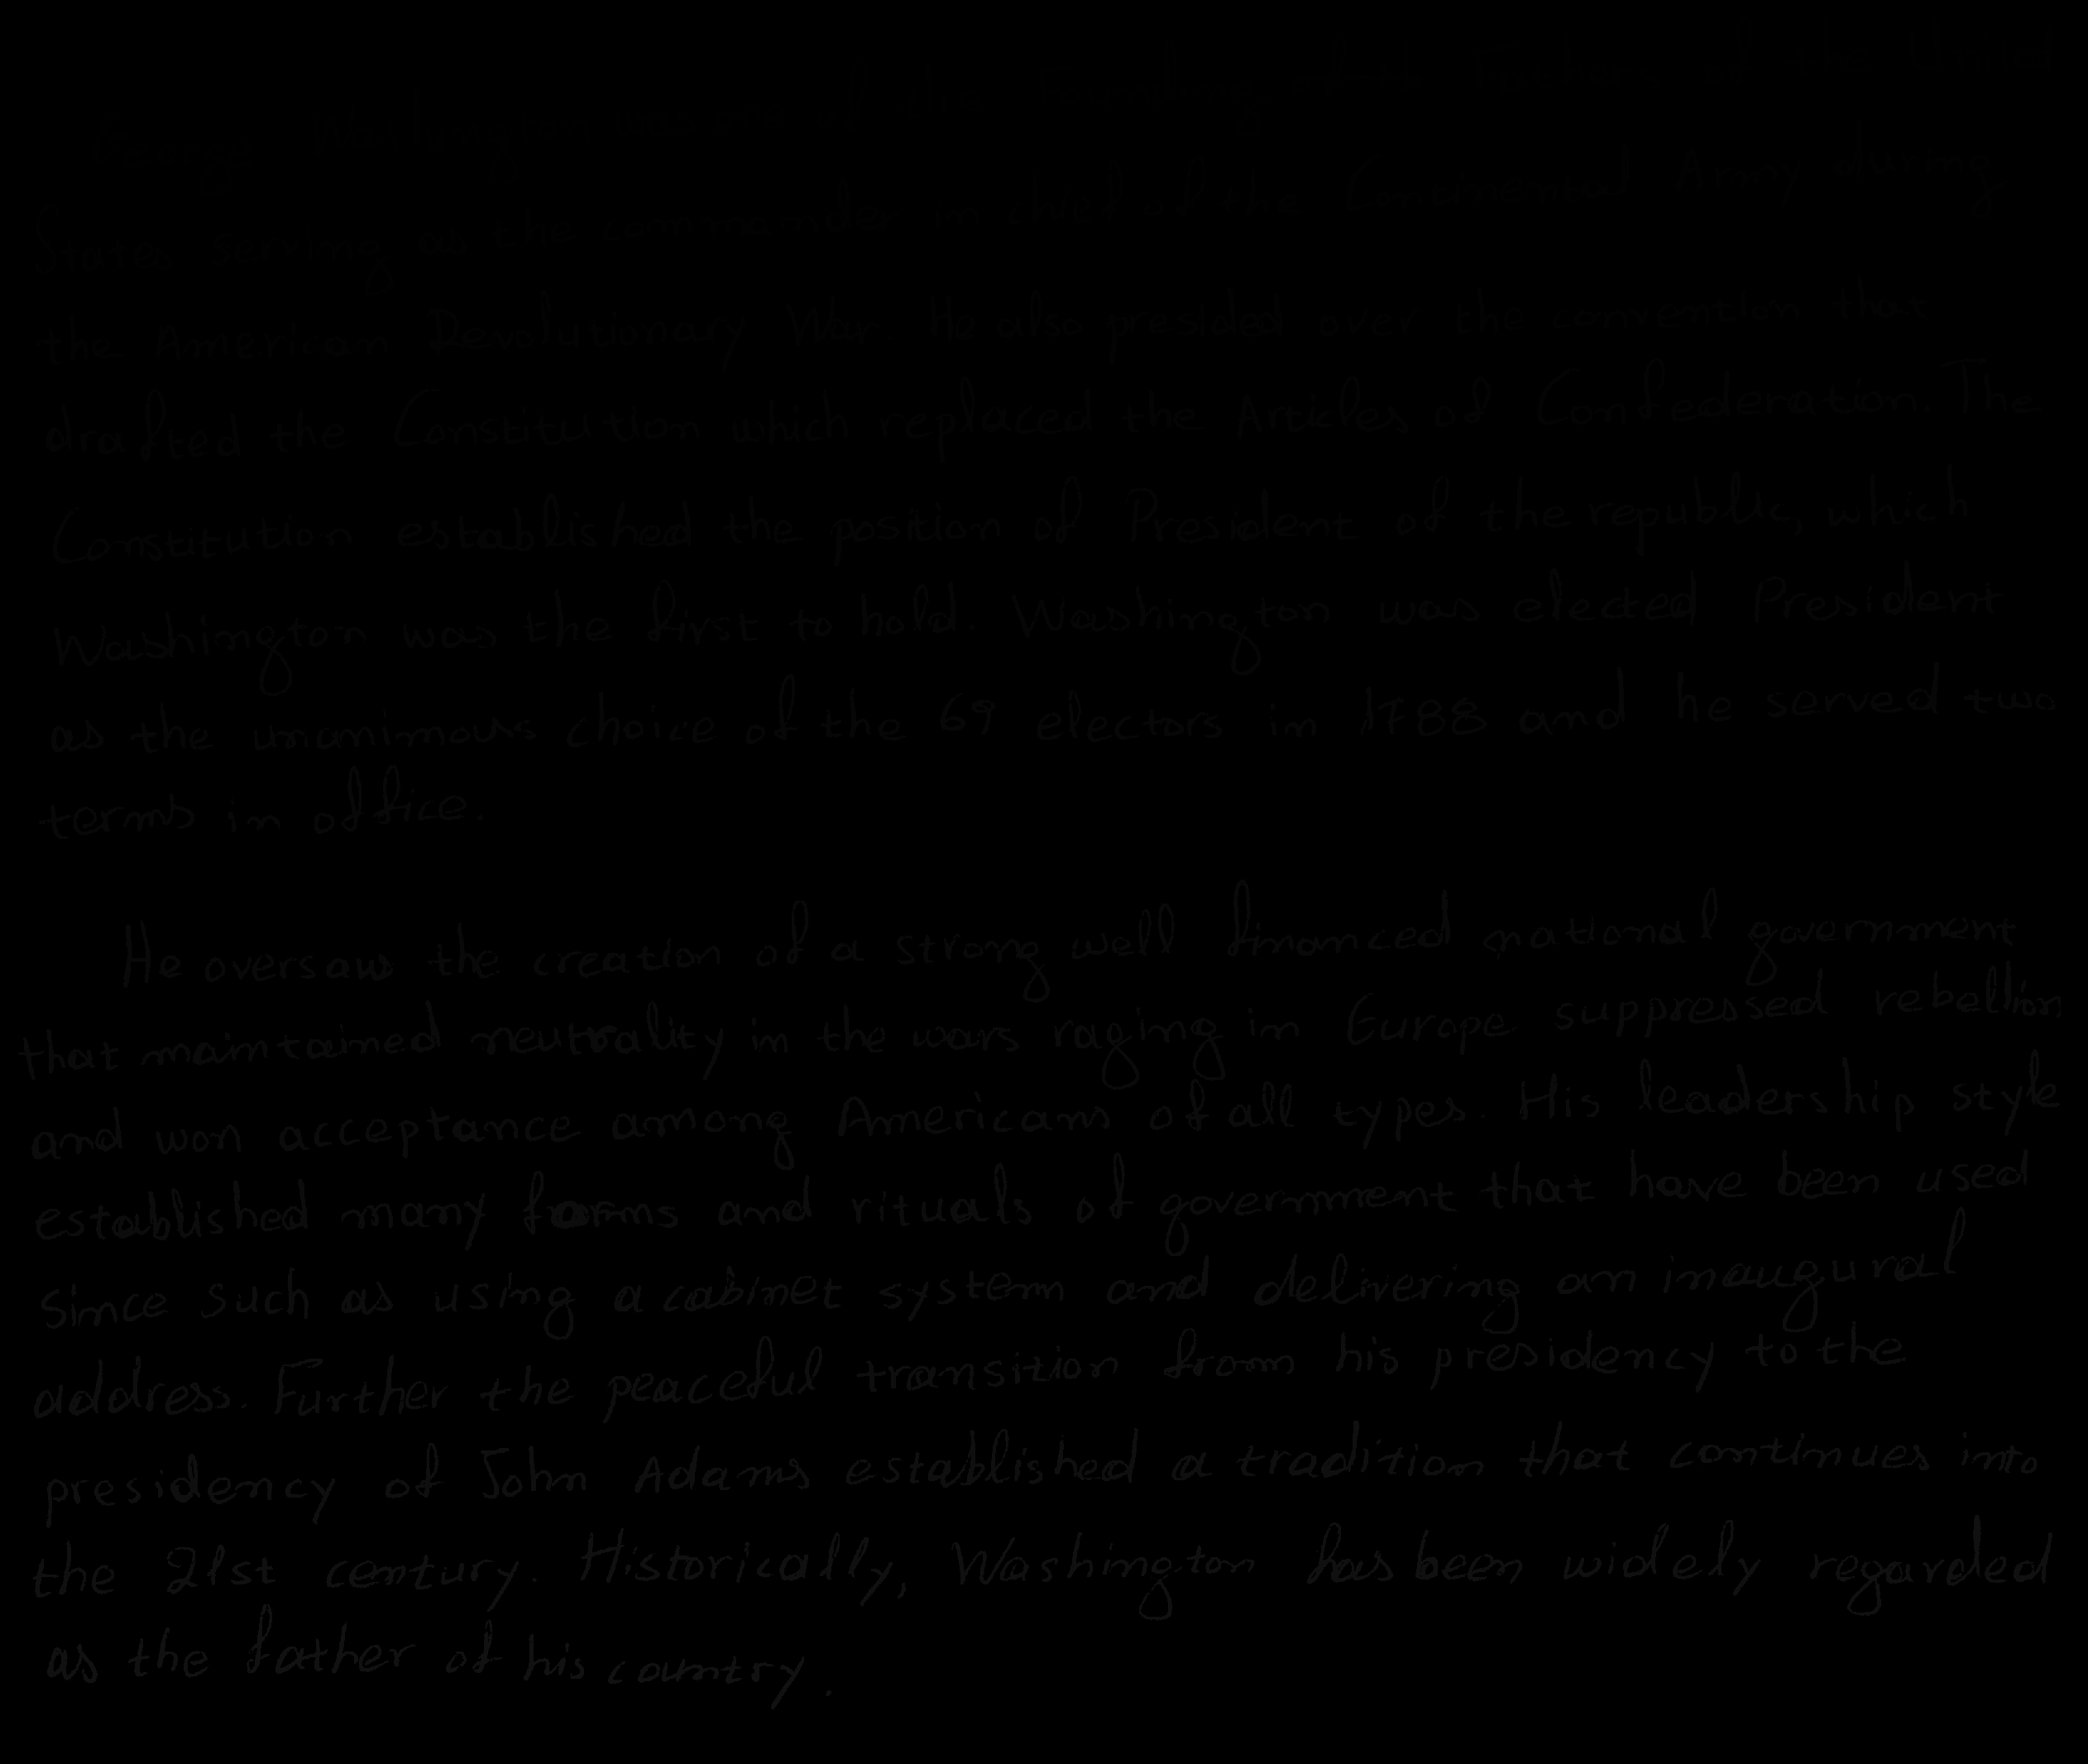 George Washington was one of the Founding Fathers of the United
States serving as the commander in chief of the Continental Army during
the American Revolutionary War. He also presided over the convention that
drafted the Constitution which replaced the Articles of Confederation. The
Constitution established the position of President of the republic, which
Washington was the first to hold. Washington was elected President
as the unanimous choice of the 69 electors in 1788 and he served two
terms in office.
He oversaw the creation of a strong well financed national government
that maintained neutrality in the wars raging in Europe suppressed rebellion
and won acceptance among Americans of all types. His leadership style
established many forms and rituals of government that have been used
since such as using a cabinet system and delivering an inaugural
address. Further the peaceful transition from his presidency to the
presidency of John Adams established a tradition that continues into
the 21st century. Historically, Washington has been widely regarded
as the father of his country.